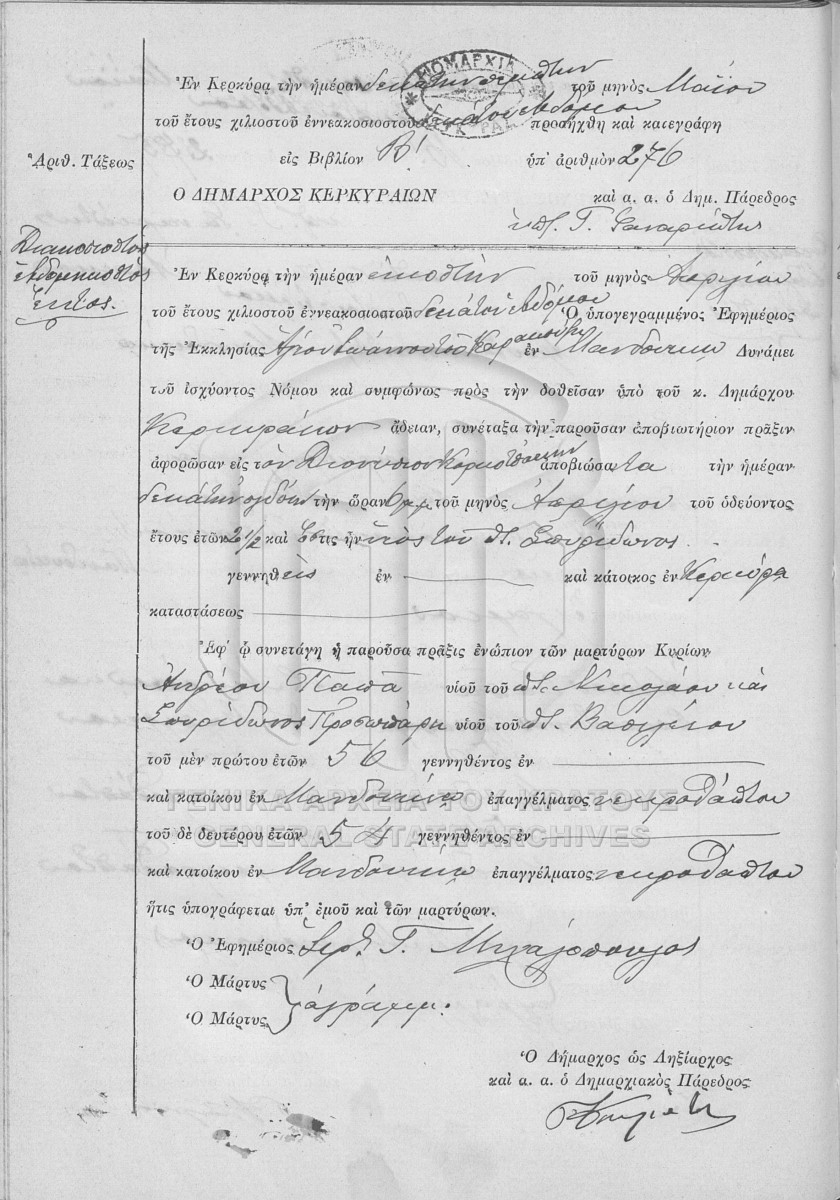 ΝΟΜΑΡΧΙΑ
Ἐν Κερκύρᾳ τὴν ἡμέραν δεκάτην πέμπτην τοῦ μηνὸς Μαΐου
τοῦ ἔτους χιλιοστοῦ ἐννεακοσιοστοῦ δεκάτου ἑβδόμου προσήχθη καὶ κατεγράφη
Ἀριθ. Τάξεως εἰς Βιβλίον Β' ὑπ' ἀριθμὸν 276
Ο ΔΗΜΑΡΧΟΣ ΚΕΡΚΥΡΑΙΩΝ καὶ α. α. ὁ Δημ. Πάρεδρος
Γ.
Διακοσιοστὸς
ἑβδομηκοστὸς
ἕκτος.
Ἐν Κερκύρᾳ τὴν ἡμέραν εἰκοστὴν τοῦ μηνὸς Ἀπριλίου
τοῦ ἔτους χιλιοστοῦ ἐννεακοσιοστοῦ δεκάτου ἑβδόμου Ὁ ὑπογεγραμμένος Ἐφημέριος
τῆς Ἐκκλησίας Ἁγίου Ἰωάννου τοῦ ἐν Μανδουκίῳ Δυνάμει
τοῦ ἰσχύοντος Νόμου καὶ συμφώνως πρὸς τὴν δοθεῖσαν ὑπὸ τοῦ κ. Δημάρχου
Κερκυραίων ἄδειαν, συνέταξα τὴν παροῦσαν ἀποβιωτήριον πρᾶξιν
ἀφορῶσαν εἰς τὸν Διονύσιον ἀποβιώσαντα τὴν ἡμέραν
δεκάτην ὀγδόην τὴν ὥραν 6 μ.μ. τοῦ μηνὸς Ἀπριλίου τοῦ ὁδεύοντος
ἔτους ἐτῶν 2 1/2 καὶ ὅστις ἦν υἱὸς τοῦ Σπυρίδωνος
γεννηθεὶς ἐν καὶ κάτοικος ἐν Κερκύρᾳ
καταστάσεως
Ἐφ' ᾧ συνετάγη ἡ παροῦσα πρᾶξις ἐνώπιον τῶν μαρτύρων Κυρίων
Ἀνδρέου Παπᾶ υἱοῦ τοῦ Νικολάου καὶ
Σπυρίδωνος υἱοῦ τοῦ Βασιλείου
τοῦ μὲν πρώτου ἐτῶν 56 γεννηθέντος ἐν
καὶ κατοίκου ἐν Μανδουκίῳ ἐπαγγέλματος νεκροθάπτου
ΓΕΝΙΚΑ ΑΡΧΕΙΑ ΤΟΥ ΚΡΑΤΟΥΣ
GENERAL STATE ARCHIVES
τοῦ δὲ δευτέρου ἐτῶν 54 γεννηθέντος ἐν
καὶ κατοίκου ἐν Μανδουκίῳ ἐπαγγέλματος νεκροθάπτου
ἥτις ὑπογράφεται ὑπ' ἐμοῦ καὶ τῶν μαρτύρων.
Ὁ Ἐφημέριος Γ. Μιχαλόπουλος
Ὁ Μάρτυς
ἀγράμμ.
Ὁ Μάρτυς
Ὁ Δήμαρχος ὡς Ληξίαρχος
καὶ α. α. ὁ Δημαρχιακὸς Πάρεδρος